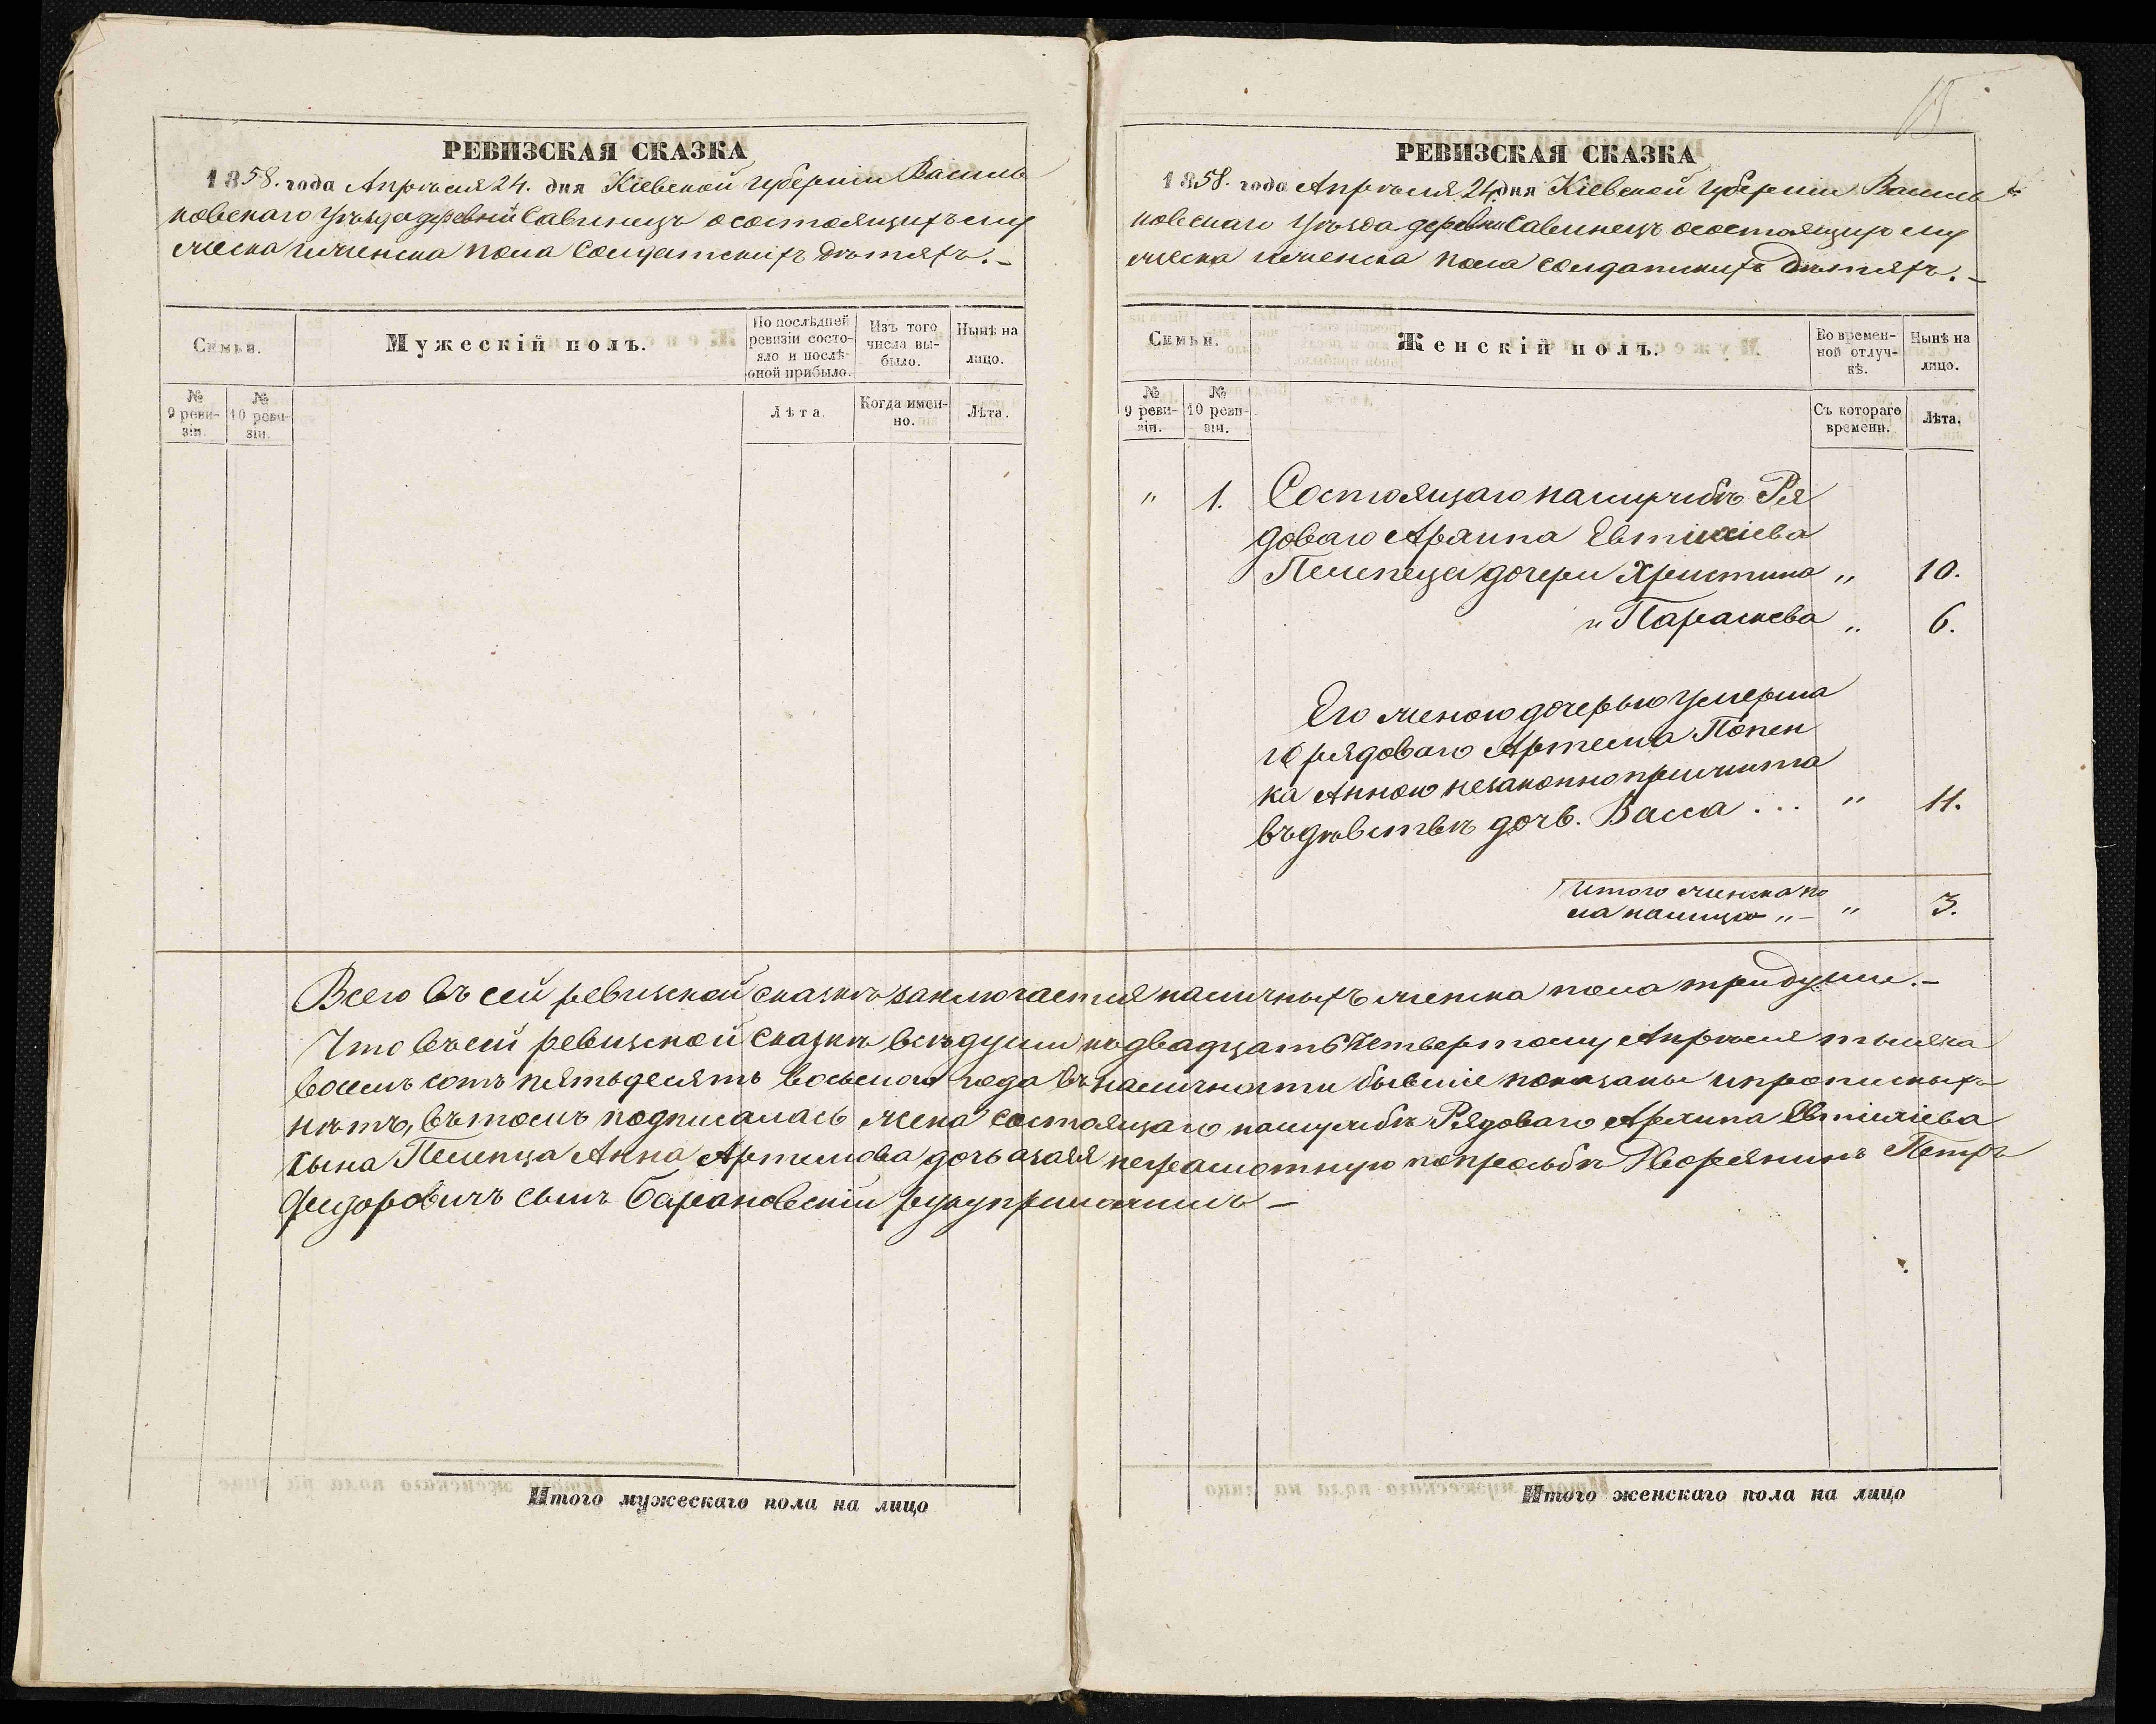 РЕВИЗСКАЯ СКАЗКА
1858. года Апрѣля 24. дня Кіевской губерніи Василь
ковскаго уѣзда деревни Савинецъ о состоящихъ му
жеска и женска пола солдатскихъ дѣтяхъ.-
Семьи.
Мужескій полъ.
По послѣдней ревизіи состояло и послѣ оной прибыло.
Изъ того числа выбыло.
Нынѣ на лицо.
№ 9 ревизіи.
№ 10 ревизіи.
Лѣта.
Когда именно.
Лѣта.
Итого мужескаго пола на лицо
15
РЕВИЗСКАЯ СКАЗКА
1858. года Апрѣля 24. дня Кіевской губерніи Василь
ковскаго уѣзда деревни Савинецъ о состоящихъ му
жеска и женска пола солдатскихъ дѣтяхъ.-
Семьи.
Женскій полъ.
Во временной отлучкѣ.
Нынѣ на лицо.
№ 9 ревизіи.
№ 10 ревизіи.
Съ котораго времени.
Лѣта.
" 1. Состоящаго на службѣ Ря
доваго Архипа Евтихіева
Пелепеца дочери Христина " 10.
и Параскева " 6.
Его женою дочерью умерша
го рядоваго Артема Попен
ка Анною незаконно прижита
въ дѣвствѣ дочь. Васса ... " 11.
Итого женска по
ла на лицо " - " 3.
Всего въ сей ревизской сказкѣ заключается наличныхъ женска пола три души.-
Что въ сей ревизской сказкѣ всѣ души къ двадцать четвертому Апрѣля тысяча
восемь сотъ пятьдесятъ восьмого года въ наличности бывшіе показаны и прописныхъ
нѣтъ, въ томъ подписалась жена состоящаго на службѣ Рядоваго Архипа Евтихіева
сына Пелепца Анна Артемова дочь а за нея неграмотную по просьбѣ Дворянинъ Петръ
Фидоровичъ сынъ Барановскій руку приложилъ -
Итого женскаго пола на лицо